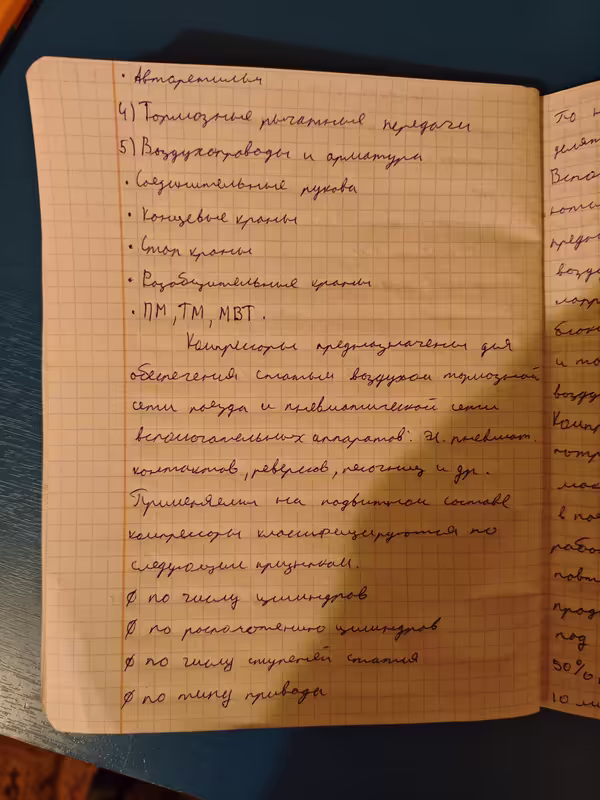 · Авторежимы
4) Тормозные рычажные передачи
5) Воздухопроводы и арматура
· Соединительные рукова
· Концевые краны
· Стоп краны
· Разобщительные краны
· ПМ, ТМ, МВТ.
Компрессоры предназначены для
обеспечения сжатым воздухом тормозной
сети поезда и пневматической сети
вспомогательных аппаратов: эл. пневмат.
контактов, реверсов, песочниц и др.
Применяемы на подвижном составе
компрессоры классифицируются по
следующим признакам.
∅ по числу цилиндров
∅ по расположению цилиндров
∅ по числу ступеней сжатия
∅ по типу привода
То
Вспо
возду
и то
возду
Комп
в по
рабо
под
50%
10 ми